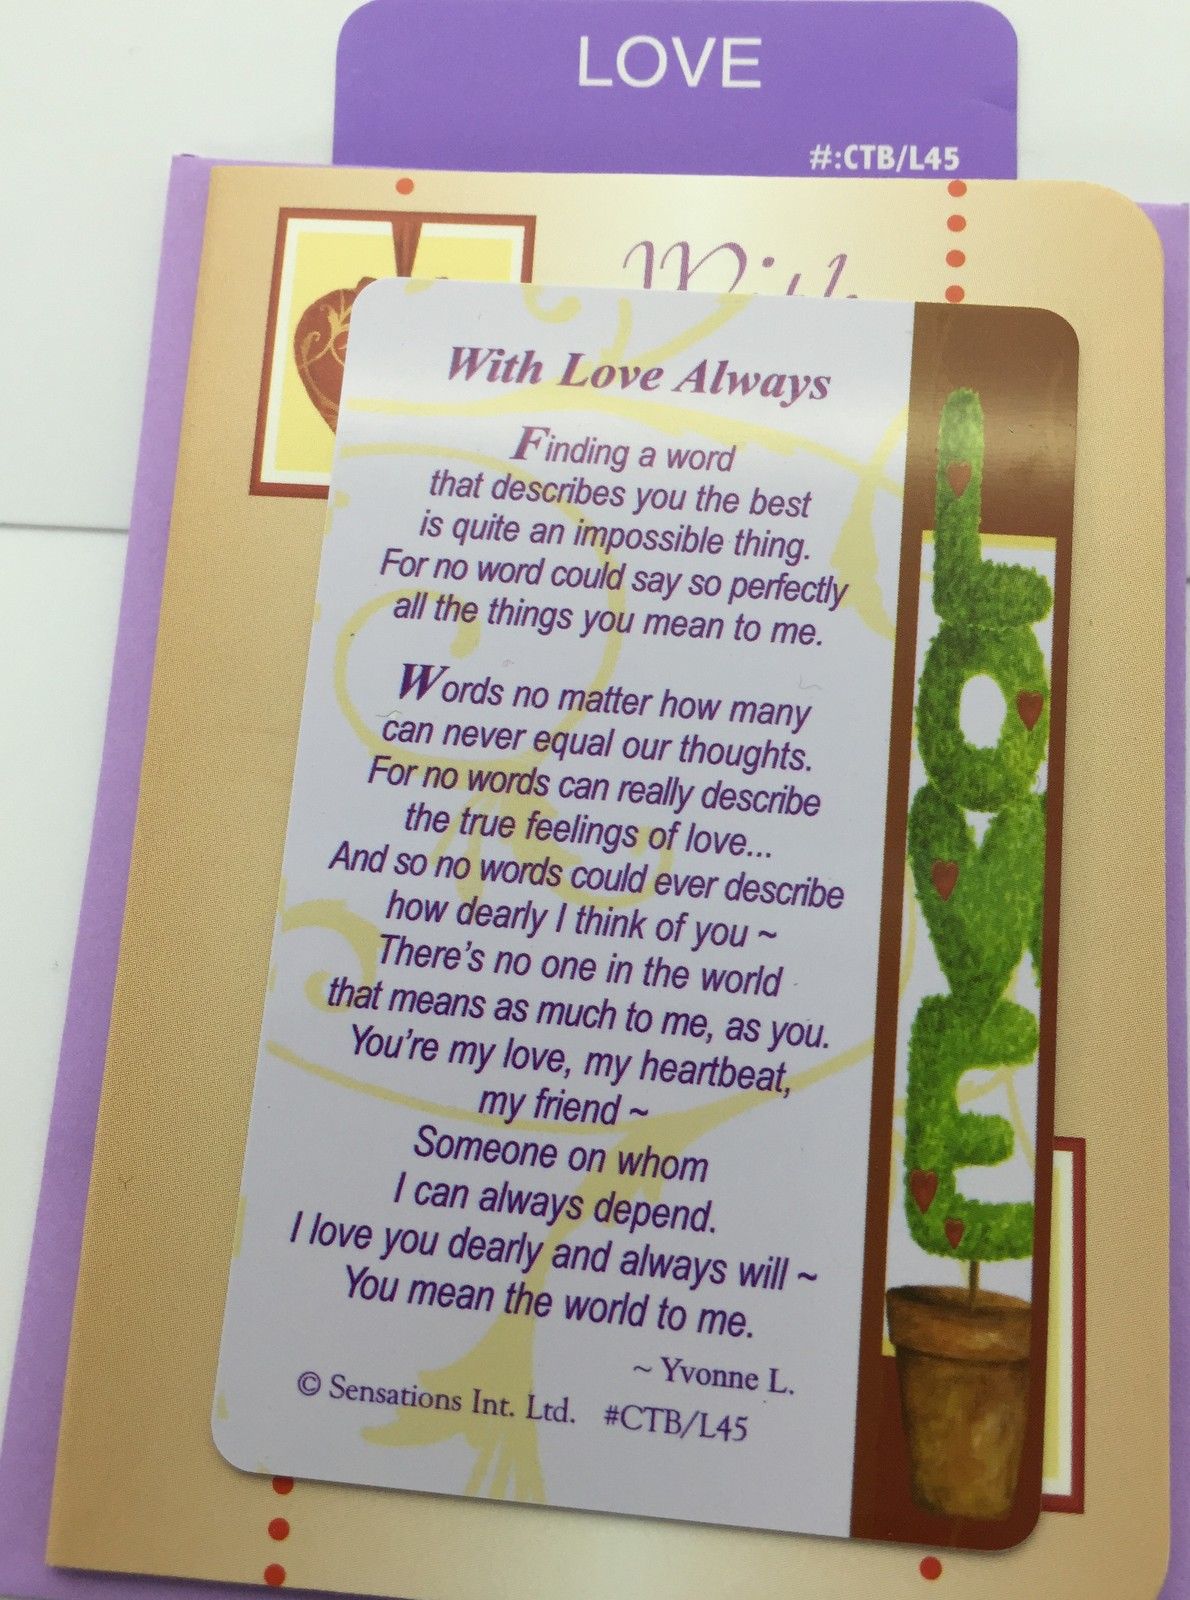 LOVE
#:CTB/L45
With
With Love Always
Finding a word
that describes you the best
is quite an impossible thing.
For no word could say so perfectly
all the things you mean to me.
Words no matter how many
can never equal our thoughts.
For no words can really describe
the true feelings of love...
And so no words could ever describe
how dearly I think of you ~
There's no one in the world
that means as much to me, as you.
You're my love, my heartbeat,
my friend ~
Someone on whom
I can always depend.
I love you dearly and always will ~
You mean the world to me.
~ Yvonne L.
© Sensations Int. Ltd. #CTB/L45
LOVE